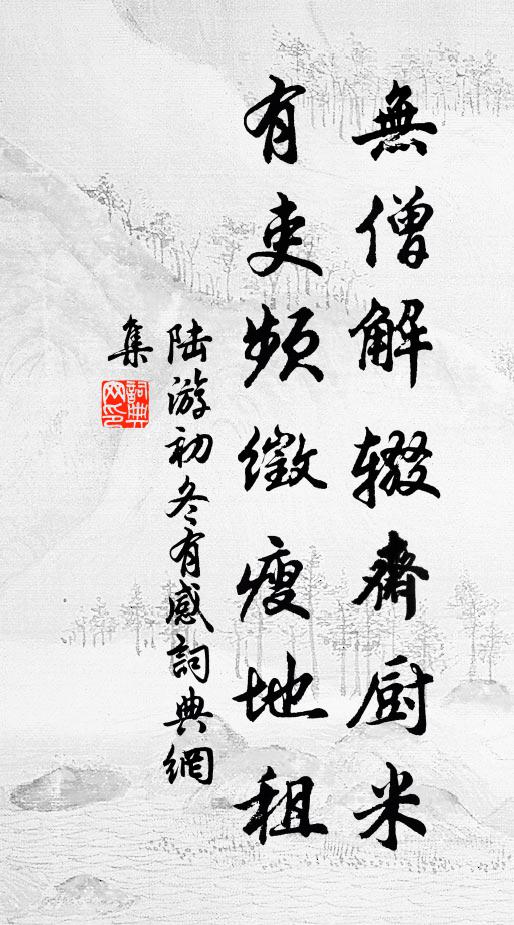 無僧解辍齋厨米
有吏頻徵瘦地租
陆游初冬有感詞典網
集
詞典網印